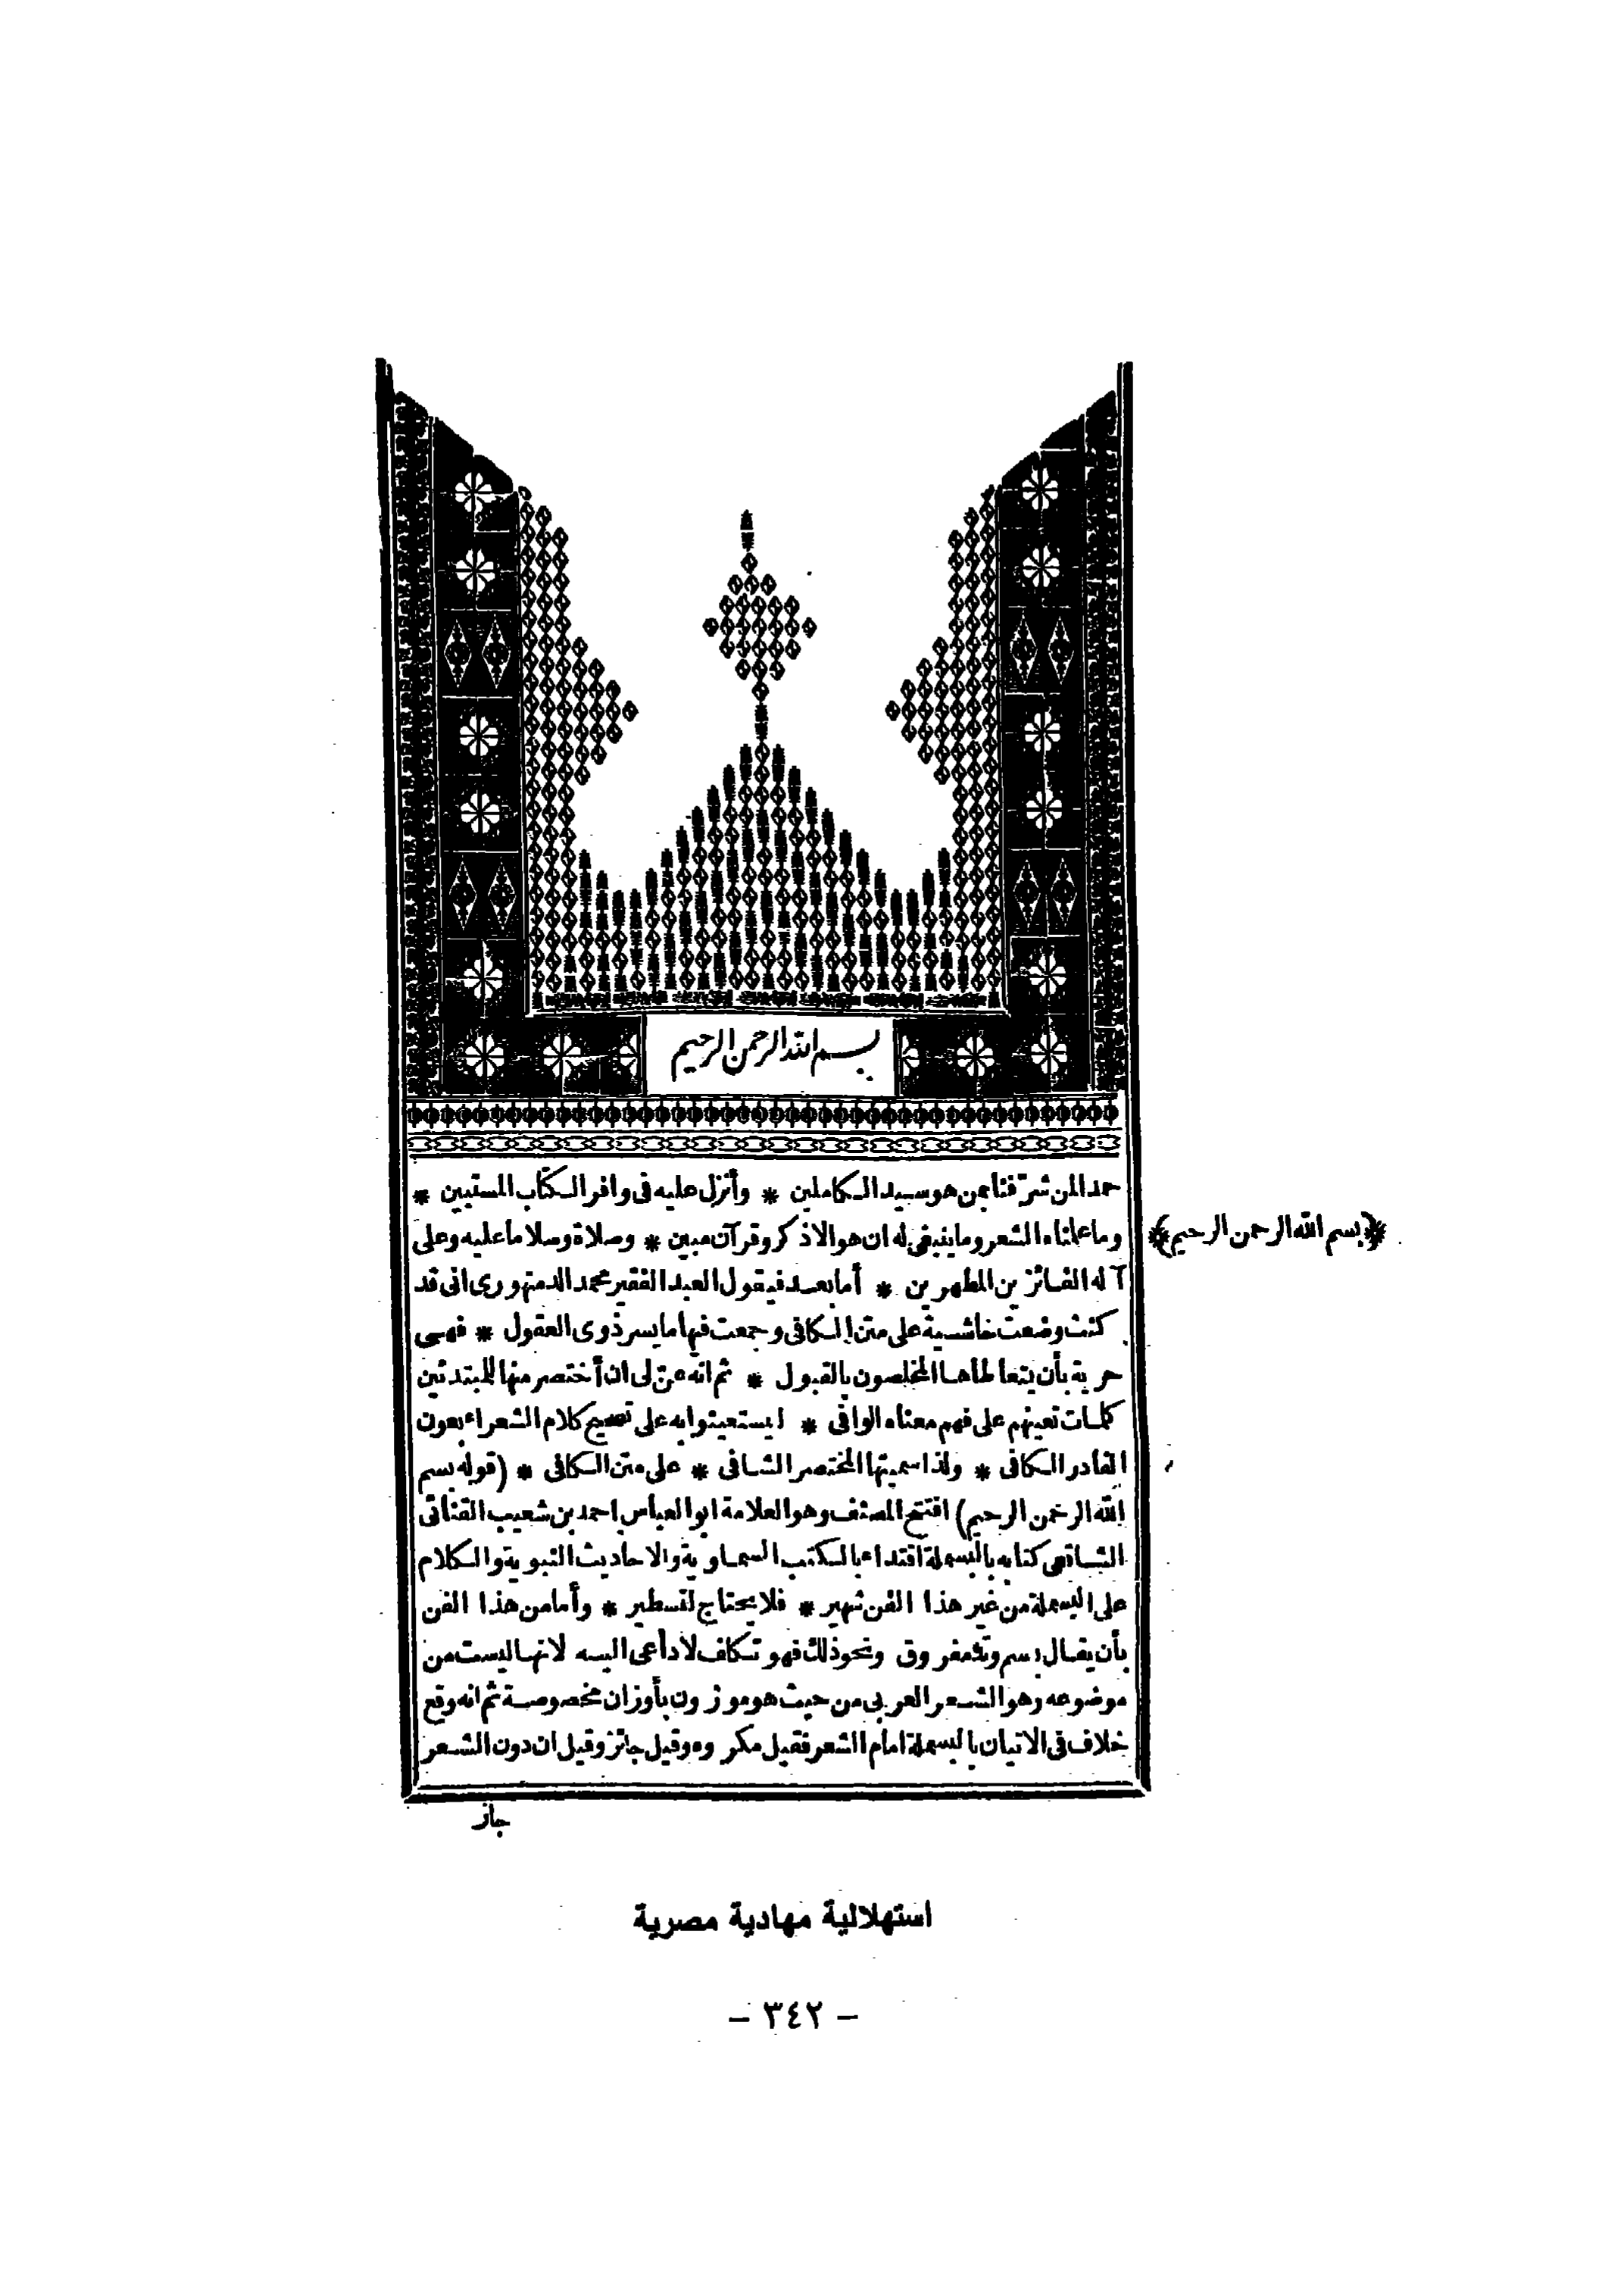 بسم الله الرحمن الرحيم
حمدا لمن شرّفنا بمن هو سيد الكاملين * وأنزل عليه فى وافر الكتاب المستبين *
وما علمناه الشعر وما ينبغى له ان هو الا ذكر وقرآن مبين * وصلاة وسلاما عليه وعلى
﴿بسم الله الرحمن الرحيم﴾
آله الفائزين المطهرين * أما بعد فيقول العبد الفقير محمد الدمنهورى انى قد
كنت وضعت حاشية على متن الكافى وجمعت فيها ما يسر ذوى العقول * فهى
حرية بأن يتعاطاها المخلصون بالقبول * ثم انه عنّ لى ان أختصر منها للمبتدئين
كلمات تعينهم على فهم معناه الوافى * ليستعينوا به على تصحيح كلام الشعراء بعون
القادر الكافى * ولذا سميتها المختصر الشافى * على متن الكافى * (قوله بسم
الله الرحمن الرحيم) افتتح المصنف وهو العلامة ابو العباس احمد بن شعيب القنائى
الشافعى كتابه بالبسملة اقتداء بالكتب السماوية والاحاديث النبوية والكلام
على البسملة من غير هذا الفن شهير * فلا يحتاج لتسطير * وأما من هذا الفن
بأن يقال بسم وتد مفروق ونحو ذلك فهو تكلف لا داعى اليه لانها ليست من
موضوعه وهو الشعر العربى من حيث هو موزون بأوزان مخصوصة ثم انه وقع
خلاف فى الاتيان بالبسملة امام الشعر فقيل مكروه وقيل جائز وقيل ان دون الشعر
جاز
استهلالية مهادية مصرية
– ٣٤٢ –